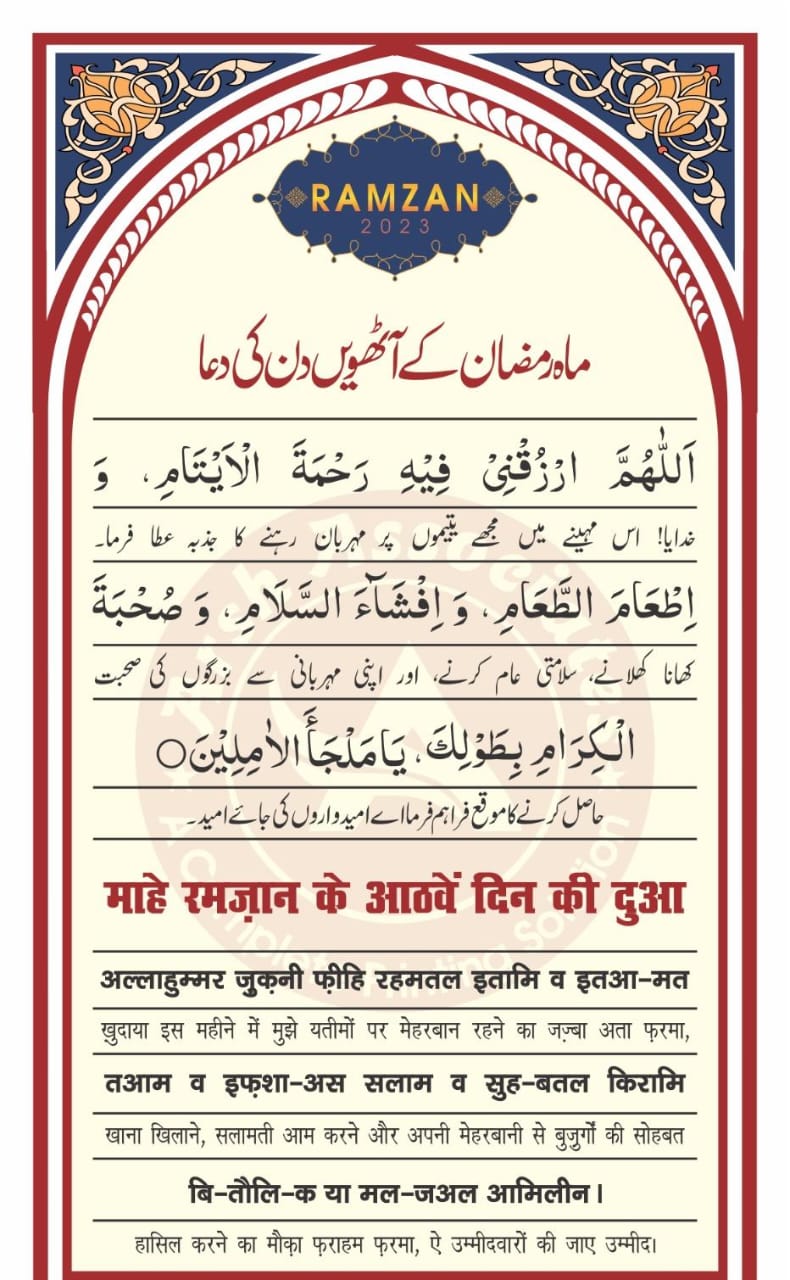 RAMZAN
2023
ماہ رمضان کے آٹھویں دن کی دعا
اَللّٰهُمَّ ارْزُقْنِیْ فِیْهِ رَحْمَةَ الْاَیْتَامِ، وَ
خدایا! اس مہینے میں مجھے یتیموں پر مہربان رہنے کا جذبہ عطا فرما۔
اِطْعَامَ الطَّعَامِ، وَ اِفْشَآءَ السَّلَامِ، وَ صُحْبَةَ
کھانا کھلانے، سلامتی عام کرنے، اور اپنی مہربانی سے بزرگوں کی صحبت
الْکِرَامِ بِطَوْلِكَ، یَا مَلْجَأَ الْاٰمِلِیْنَ○
حاصل کرنے کا موقع فراہم فرما اے امیدواروں کی جائے امید۔
माहे रमज़ान के आठवें दिन की दुआ
अल्लाहुम्मर ज़ुक़नी फ़ीहि रहमतल इतामि व इतआ-मत
ख़ुदाया इस महीने में मुझे यतीमों पर मेहरबान रहने का जज़्बा अता फ़रमा,
तआम व इफ़शा-अस सलाम व सुह-बतल किरामि
खाना खिलाने, सलामती आम करने और अपनी मेहरबानी से बुज़ुर्गों की सोहबत
बि-तौलि-क या मल-जअल आमिलीन।
हासिल करने का मौक़ा फ़राहम फ़रमा, ऐ उम्मीदवारों की जाए उम्मीद।